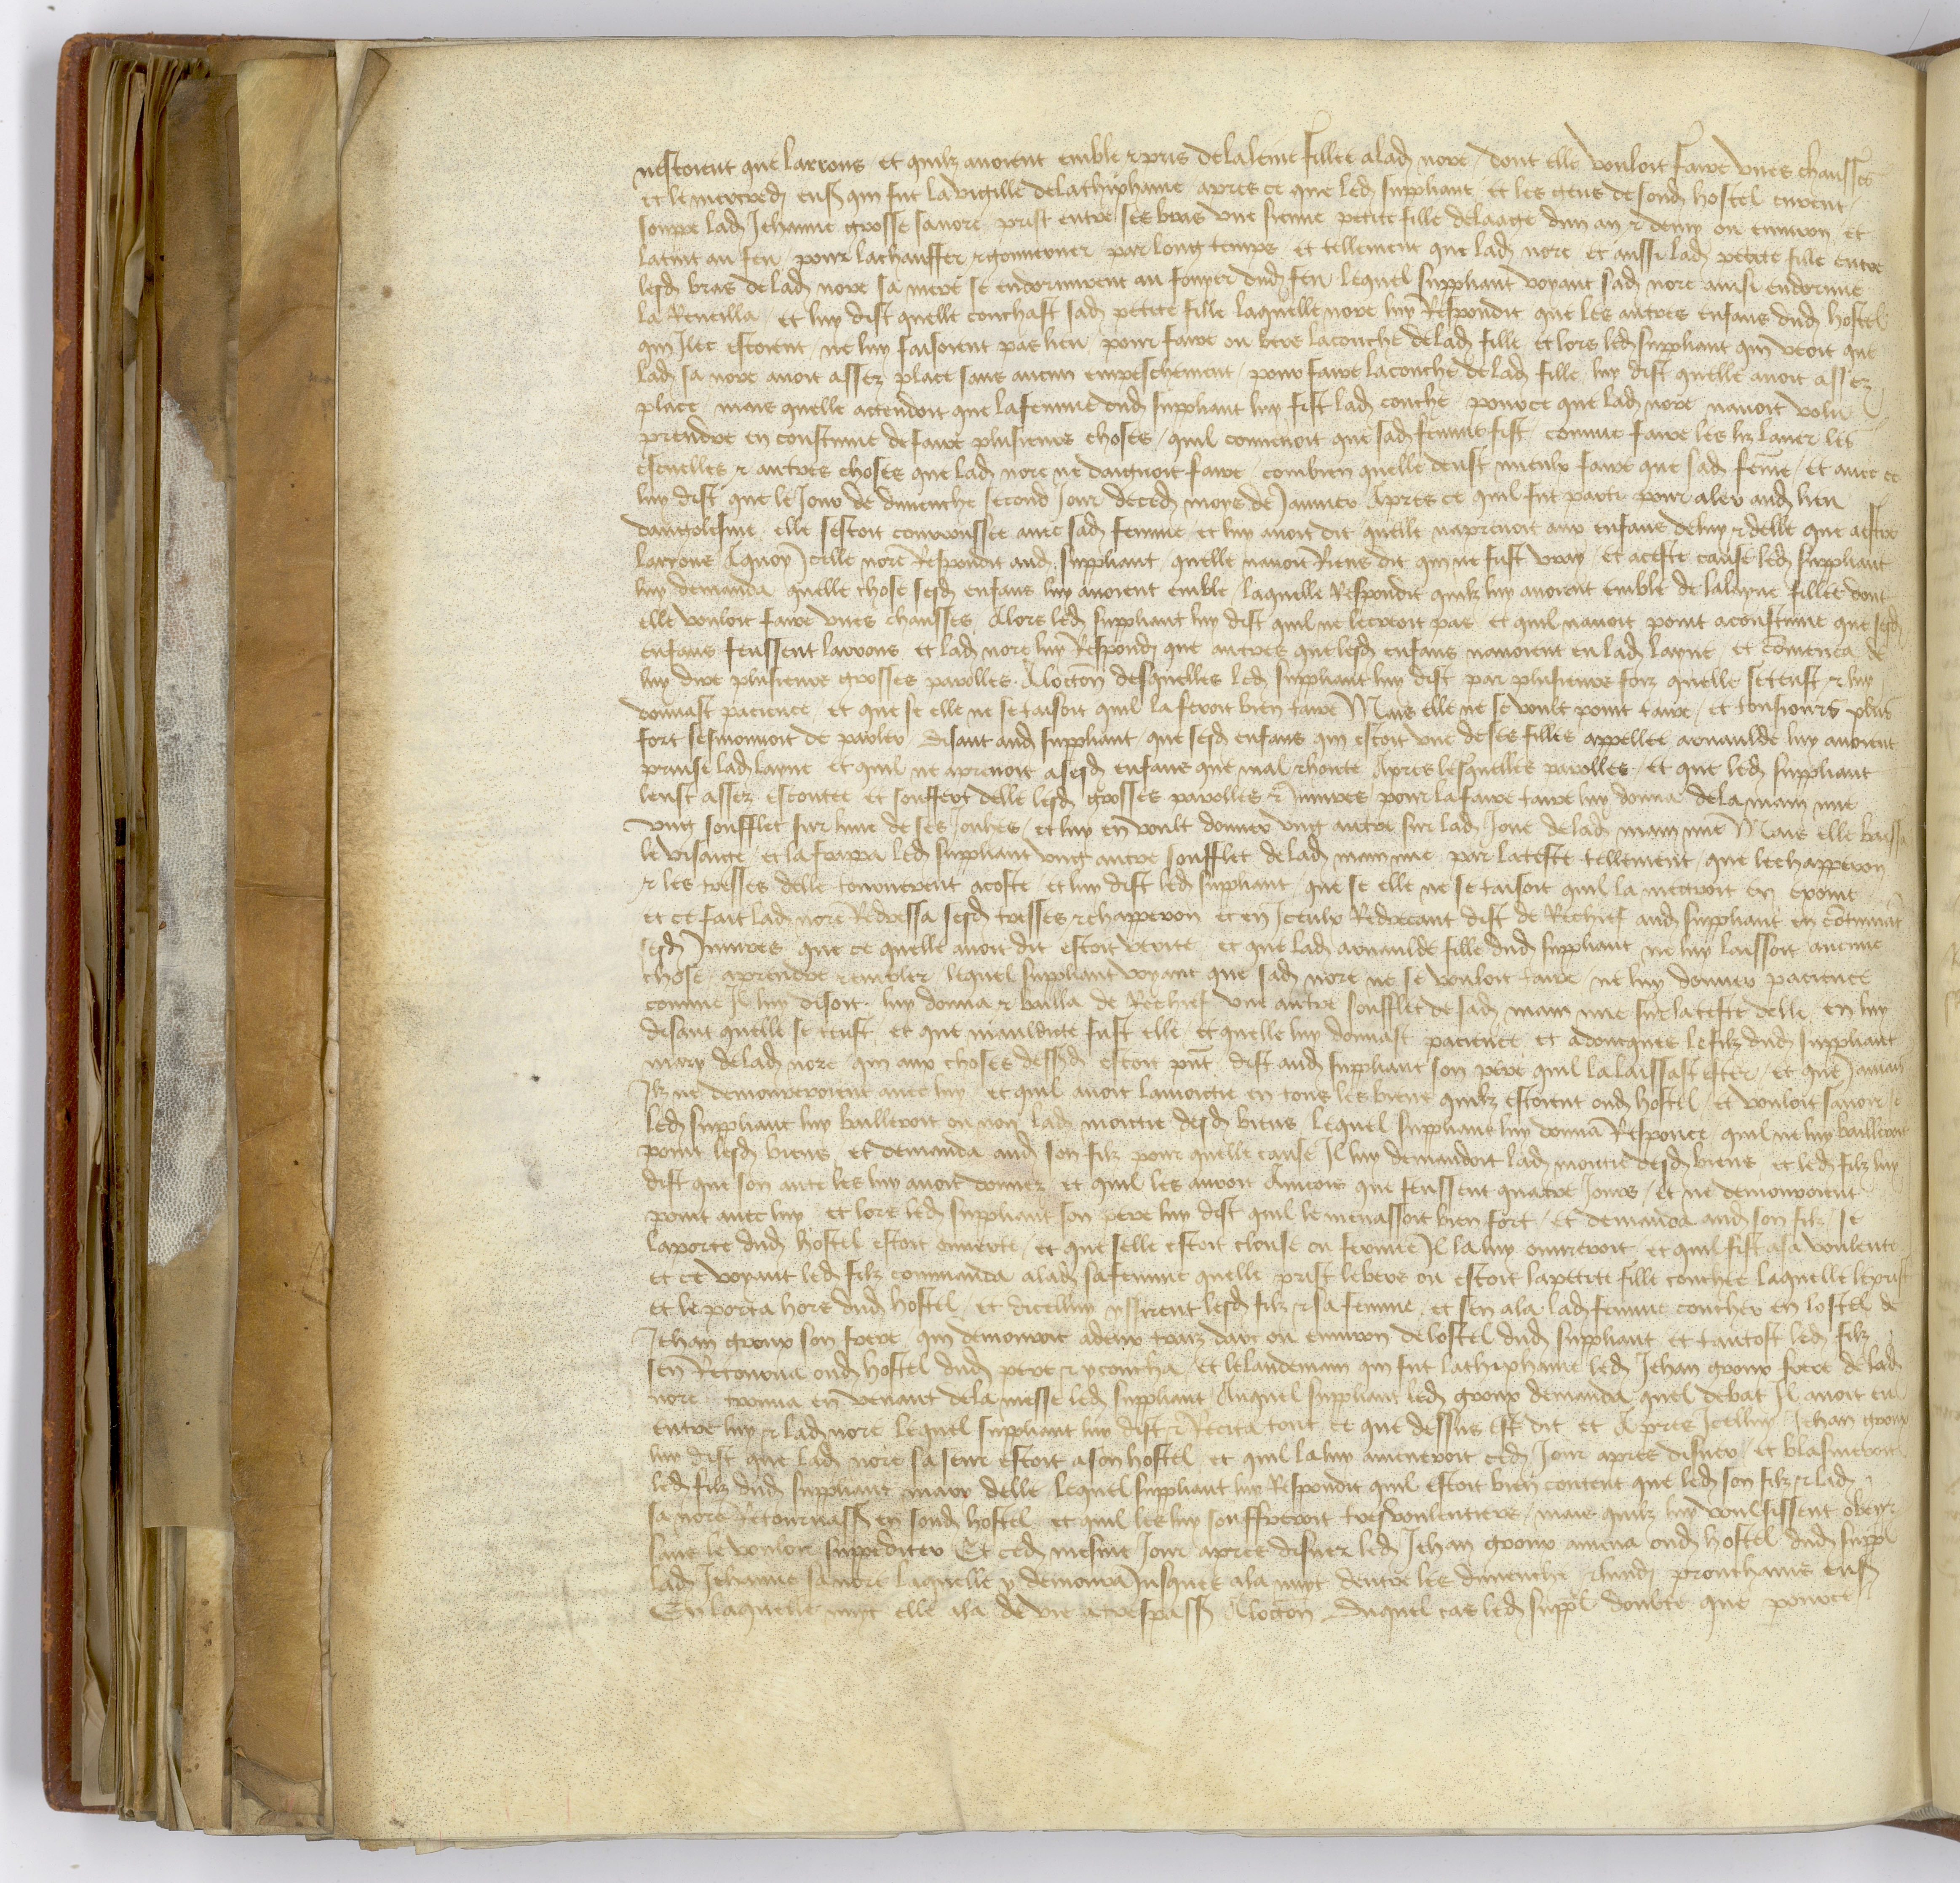 nestoient que larrons et quilz avoient emble & pris de la leine fillee a lad nore dont elle vouloit faire unes chausses
et le mercredj enss qui fut la vigille de la thiphanie apres ce que led suppliant et les gens de sond hostel eurent
souppe lad Jehanne grosse sa nore prist entre ses bras une sienne petite fille de laage dun an & demy ou environ et
la tint au feu pour la chauffer & gouverner par long temps et tellement que lad nore et aussi lad petite fille entre
lesd bras de lad nore sa mere se endormirent au fouyer dud feu lequel suppliant voyant sad nore ainsi endormie
la Reveilla et luy dist quelle couchast sad petite fille laquelle nore luy Respondit que les autres enfans dud hostel
qui Ilec estoient ne luy faisoient pas lieu pour faire ou bers la couche de lad fille et lors led suppliant qui veoit que
lad sa nore avoit assez place sans aucun empeschement pour faire la couche de lad fille luy dist quelle avoit assez
place mais quelle actendoit que la femme dud suppliant luy fist lad couche pource que lad nore navoit volu
prendre en coustume de faire plusieurs choses quil convenoit que sad femme fist comme faire les liz laver les
escuelles & autres choses que lad nore ne daignoit faire combien quelle deust mieulx faire que sad feme et avec ce
luy dist que le Jour de dimenche second Jour de ced moys de Janvier Apres ce quil fut parti pour aler aud lieu
dangolesme elle sestoit courroussee avec sad femme et luy avoit dit quelle naprenoit aux enfans de luy & delle que aestre
larrons A quoy Icelle nore Respondit aud suppliant quelle navoit Riens dit qui ne fust vray et a ceste cause led suppliant
luy demanda quelle chose sesd enfans luy avoient emble laquelle Respondit quilz luy avoient emble de la layne fillee dont
elle vouloit faire unes chausses Alors led suppliant luy dist quil ne le creoit pas et quil navoit point acoustume que sesd
enfans feussent larrons et lad nore luy Respondj que autres que lesd enfans navoient eu lad layne et comenca de
luy dire plusieurs grosses parolles A loccon desquelles led suppliant luy dist par plusieurs foiz quelle se teust & luy
donnast pacience et que se elle ne se taisoit quil la feroit bien taire Mais elle ne se voult point taire et tousiours plus
fort sesmouvoit de parler disant aud suppliant que sesd enfans qui estoit une de ses filles appellee arnaulde luy avoient
prinse lad layne et quil ne aprenoit a sesd enfans que mal & honte Apres lesquelles parolles et que led suppliant
leust assez escoutee et souffert delle lesd grosses parolles & Iniures pour la faire taire luy donna de la main nue
ung soufflet sur lune de ses Jouhes et luy en voult donner ung autre sur lad Joue de lad main nue Mais elle baissa
le visaige et la frappa led suppliant ung autre soufflet de lad main nue par la teste tellement que le chapperon
& les tresses delle tournerent a coste et luy dist led suppliant que se elle ne se taisoit quil la mectroit en
et ce fait lad nore Redressa sesd tresses & chapperon et en Iceulx Redrecant dist de Rechief aud suppliant en cotinuat
sesd Iniures que ce quelle avoit dit estoit verite et que lad arnaulde fille dud suppliant ne luy laissoit aucune
chose aprendre & embler lequel suppliant voyant que sad nore ne se vouloit taire ne luy donner pacience
comme Il luy disoit luy donna & bailla de Rechief une autre soufflet de sad main nue sur la teste delle en luy
disant quelle se teust et que mauldicte fust elle et quelle luy donnast pacience et adoncques le filz dud suppliant
mary de lad nore qui aux choses dessusd estoit pnt dist aud suppliant son pere quil la laissast ester et que Jamais
Ilz ne demoureroient avec luy et quil avoit la moictie en tous les biens quilz estoient oud hostel et vouloit savoir se
led suppliant luy bailleroit ou non lad moictie desd biens Lequel suppliant luy donna Responce quil ne luy bailleroit
point lesd biens et demanda aud son filz pour quelle cause Il luy demandoit lad moictie desd biens et led filz luy
dist que son les luy avoit donnez et quil les auroit Aincois que feussent quatre Jours et ne demourroient
point avec luy et lors led suppliant son pere luy dist quil le menassoit bien fort et demanda aud son filz se
la porte dud hostel estoit ouverte et que selle estoit clouse ou fermee Il la luy ouvreroit et quil fist a sa voulente
et ce voyant led filz commanda a lad sa femme quelle prist le bers ou estoit la petite fille couchee laquelle le prist
et le porta hors dud hostel et dicelluy yssirent lesd filz & sa femme et sen ala lad femme coucher en lostel de
Jehan groux son frere qui demouroit a deux traiz darc ou environ de lostel dud suppliant et tantost led filz
sen Retourna oud hostel dud pere & y coucha et le landemain qui fut la thiphanie led Jehan groux frere de lad
nore trouva en venant de la messe led suppliant Auquel suppliant led groux demanda quel debat Il avoit eu
entre luy & lad nore Lequel suppliant luy dist & Recita tout ce que dessus est dit et Apres Icelluy Jehan groux
luy dist que lad nore sa seur estoit a son hostel et quil la luy ameneroit ced Jour apres disner et blasmeroit
led filz dud suppliant mary delle lequel suppliant luy Respondit quil estoit bien content que led son filz & lad
sa nore Retournass en sond hostel et quil les luy souffreroit tresvoulentiers mais quilz luy voulsissent obeyr
sans le vouloir suppediter Et ced mesme Jour apres disner led Jehan groux amena oud hostel dud suppl
lad Jehanne sa nore laquelle y demoura Jusques a la nuyt dentre les dimenche & lundj prouchains enss
En laquelle nuyt elle ala de vie a trespass A loccon duquel cas led suppl doubte que pource